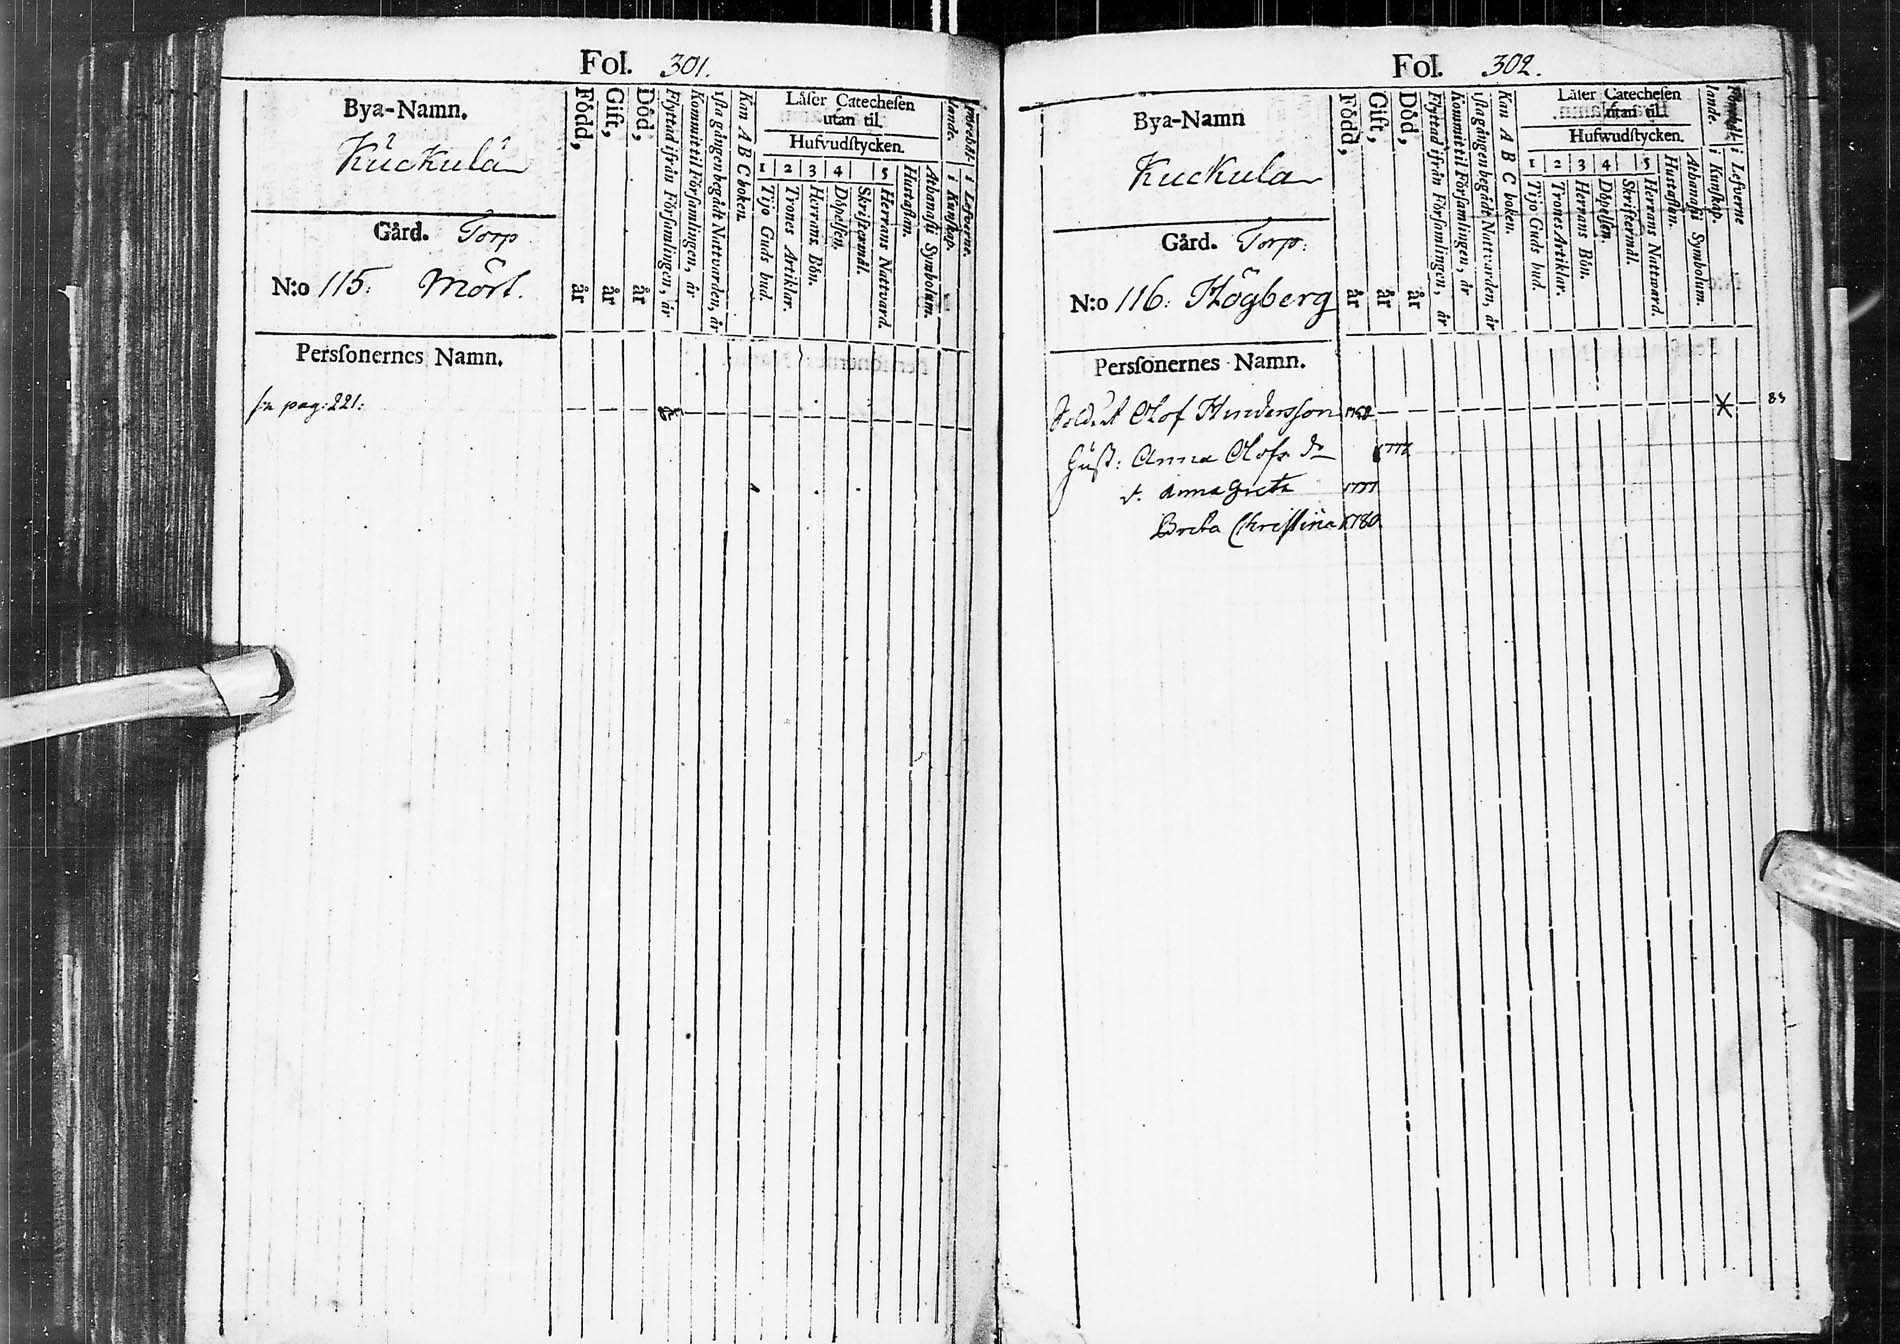 Fol. 301.
Bya-Namn.
Kuckula
Gård. Torp
N:o 115. Mört.
Född, år
Gift, år
Död, år
Flyttad ifrån Församlingen, år
Kommit til Församlingen, år
1sta gången begådt Nattvarden, år
Kan A B C boken.
Läser Catechesen
utan til.
Hufvudstycken.
1 Tijo Guds bud.
2 Trones Artiklar.
3 Herrans Bön.
4 Döpelsen.
Skriftermål.
5 Herrans Nattvard.
Hustaflan.
Athanasii Symbolum.
i Kunskap.
i Lefverne.
Personernes Namn.
pag: 221:
Fol. 302.
Bya-Namn
Kuckula
Gård. Torp.
N:o 116. Högberg
Född, år
Gift, år
Död, år
Flyttad ifrån Församlingen, år
Kommit til Församlingen, år
1sta gången begådt Nattvarden, år
Kan A B C boken.
Läser Catechesen
utan til.
Hufwudstycken.
1 Tijo Guds bud.
2 Trones Artiklar.
3 Herrans Bön.
4 Döpelsen.
Skriftermål.
5 Herrans Nattward.
Hustaflan.
Athanasii Symbolum.
i Kunskap.
i Lefverne
Personernes Namn.
Soldat Olof Hindersson 83
Hust: Anna Olofs dr
d. Anna Greta 1777
Brita Christina 1780